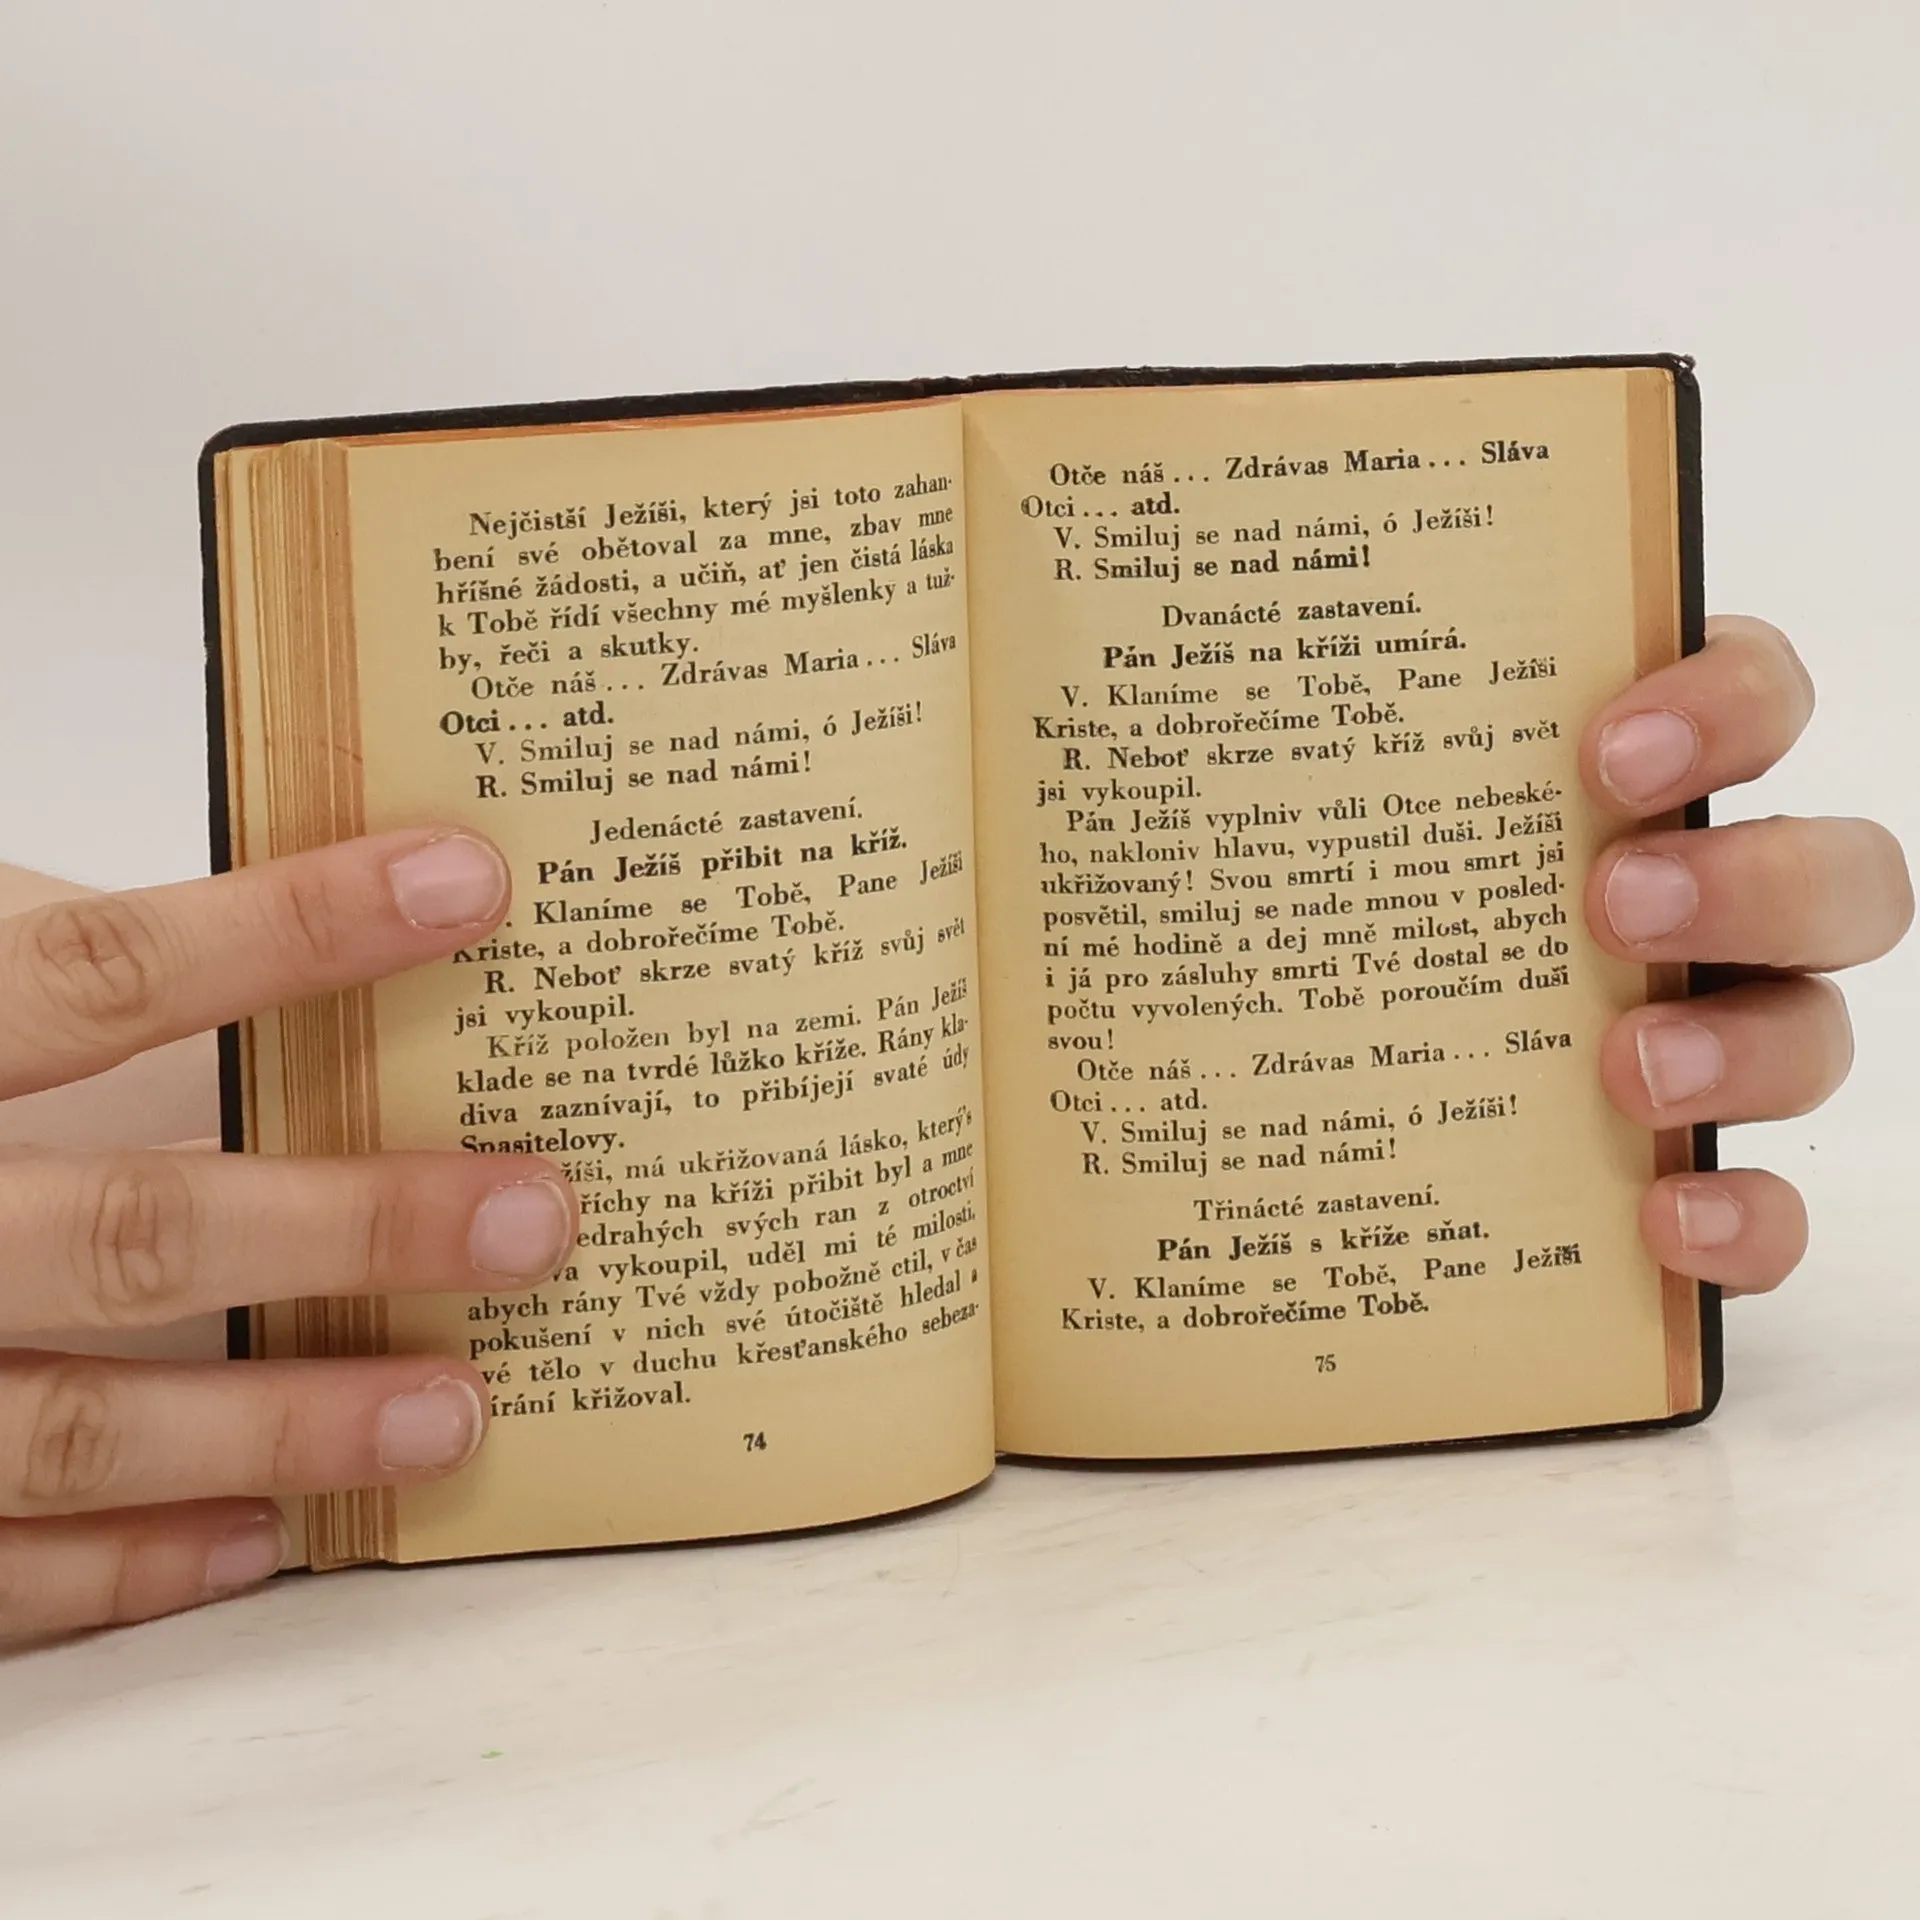 Nejčistší Ježíši, který jsi toto zahan-
bení své obětoval za mne, zbav mne
hříšné žádosti, a učiň, ať jen čistá láska
k Tobě řídí všechny mé myšlenky a tuž-
by, řeči a skutky.
Otče náš... Zdrávas Maria... Sláva
Otci... atd.
V. Smiluj se nad námi, ó Ježíši!
R. Smiluj se nad námi!
Jedenácté zastavení.
Pán Ježíš přibit na kříž.
. Klaníme se Tobě, Pane Ježíši
Kriste, a dobrořečíme Tobě.
R. Neboť skrze svatý kříž svůj svět
jsi vykoupil.
Kříž položen byl na zemi. Pán Ježíš
klade se na tvrdé lůžko kříže. Rány kla-
diva zaznívají, to přibíjejí svaté údy
Spasitelovy.
žíši, má ukřižovaná lásko, který's
říchy na kříži přibit byl a mne
edrahých svých ran z otroctví
va vykoupil, uděl mi té milosti,
abych rány Tvé vždy pobožně ctil, v čas
pokušení v nich své útočiště hledal a
vé tělo v duchu křesťanského sebeza-
írání křižoval.
74
Otče náš... Zdrávas Maria... Sláva
Otci... atd.
V. Smiluj se nad námi, ó Ježíši!
R. Smiluj se nad námi!
Dvanácté zastavení.
Pán Ježíš na kříži umírá.
V. Klaníme se Tobě, Pane Ježíši
Kriste, a dobrořečíme Tobě.
R. Neboť skrze svatý kříž svůj svět
jsi vykoupil.
Pán Ježíš vyplniv vůli Otce nebeské-
ho, nakloniv hlavu, vypustil duši. Ježíši
ukřižovaný! Svou smrtí i mou smrt jsi
posvětil, smiluj se nade mnou v posled-
ní mé hodině a dej mně milost, abych
i já pro zásluhy smrti Tvé dostal se do
počtu vyvolených. Tobě poroučím duši
svou!
Otče náš... Zdrávas Maria... Sláva
Otci... atd.
V. Smiluj se nad námi, ó Ježíši!
R. Smiluj se nad námi!
Třinácté zastavení.
Pán Ježíš s kříže sňat.
V. Klaníme se Tobě, Pane Ježíši
Kriste, a dobrořečíme Tobě.
75